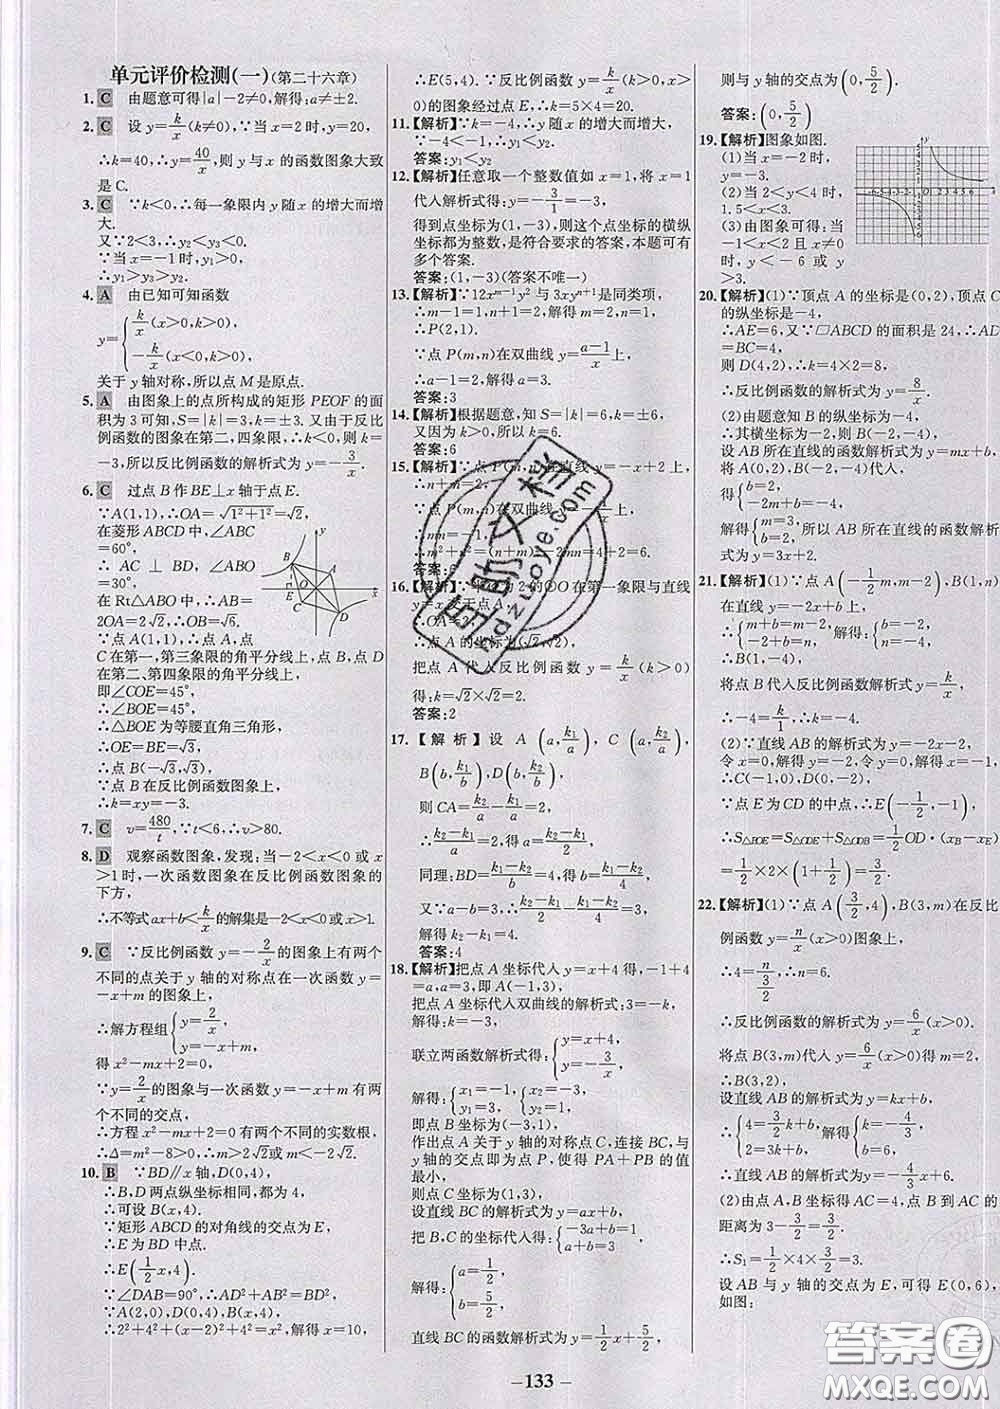 单元评价检测(一)(第二十六章)
1. C 由题意可得|a|−2≠0,解得:a≠±2.
2. C 设 y=k/x(k≠0),∵当 x=2时,y=20,
∴k=40,∴y=40/x,则 y 与 x 的函数图象大致
是 C.
3. C ∵k<0,∴每一象限内 y 随 x 的增大而增
大.
又∵2<3,∴y₂<y₃<0.
∵当 x=−1时,y₁>0,
∴y₁>y₃>y₂.
4. A 由已知可知函数
y={k/x(x>0,k>0),
−k/x(x<0,k>0);
关于 y 轴对称,所以点 M 是原点.
5. A 由图象上的点所构成的矩形 PEOF 的面
积为 3 可知,S=|k|=3,k=±3. 又由于反比
例函数的图象在第二,四象限,∴k<0,则 k=
−3,所以反比例函数的解析式为 y=−3/x.
6. C 过点 B 作 BE⊥x 轴于点 E.
∵A(1,1),∴OA=√(1²+1²)=√2,
在菱形 ABCD 中,∠ABC
=60°,
∴AC⊥BD,∠ABO
=30°,
在 Rt△ABO 中,∴AB=
2OA=2√2,∴OB=√6,
∵点 A(1,1),∴点 A,点
C 在第一,第三象限的角平分线上,点 B,点 D
在第二、第四象限的角平分线上,
即∠COE=45°,
∴∠BOE=45°,
∴△BOE 为等腰直角三角形,
∴OE=BE=√3,
∴点 B(−√3,√3),
∵点 B 在反比例函数图象上,
∴k=xy=−3.
7. C v=480/t,∵t<6,∴v>80.
8. D 观察函数图象,发现:当−2<x<0 或 x
>1 时,一次函数图象在反比例函数图象的
下方,
∴不等式 ax+b<k/x的解集是−2<x<0或x>1.
9. C ∵反比例函数 y=−2/x的图象上有两个
不同的点关于 y 轴的对称点在一次函数 y=
−x+m 的图象上,
∴解方程组{y=2/x,
y=−x+m,
得 x²−mx+2=0,
∵y=2/x的图象与一次函数 y=−x+m 有两
个不同的交点,
∴方程 x²−mx+2=0 有两个不同的实数根,
∴Δ=m²−8>0,∴m>2√2或 m<−2√2.
10. B ∵BD∥x 轴,D(0,4),
∴B,D 两点纵坐标相同,都为 4,
∴可设 B(x,4).
∵矩形 ABCD 的对角线的交点为 E,
∴E 为 BD 中点.
∴E(1/2x,4).
∵∠DAB=90°,∴AD²+AB²=BD²,
∵A(2,0),D(0,4),B(x,4),
∴2²+4²+(x−2)²+4²=x²,解得 x=10,
∴E(5,4). ∵反比例函数 y=k/x(k>0,x>
0)的图象经过点 E,∴k=5×4=20.
11.【解析】∵k=−4,∴y 随 x 的增大而增大,
∵−4<−1,∴y₁<y₂.
答案:y₁<y₂
12.【解析】任意取一个整数值如 x=1,将 x=1
代入解析式得:y=−3/1=−3,
得到点坐标为(1,−3),则这个点坐标的横纵
坐标都为整数,是符合要求的答案,本题可有
多个答案.
答案:(1,−3)(答案不唯一)
13.【解析】∵12xᵐ⁻¹y² 与 3xyⁿ⁺¹是同类项,
∴m−1=1,n+1=2,解得 m=2,n=1,
∴P(2,1).
∵点 P(m,n)在双曲线 y=(a−1)/x上,
∴a−1=2,解得 a=3.
答案:3
14.【解析】根据题意,知 S=|k|=6,k=±6,
又因为 k>0,所以 k=6.
答案:6
15.【解析】∵点 P(m,n)在直线 y=−x+2 上,
∴n+m=2,
∵点 P(m,n)在双曲线 y=−1/x上,
∴mn=−1,
∴m²+n²=(n+m)²−2mn=4+2=6.
答案:6
16.【解析】∵半径为 2 的⊙O 在第一象限与直线
y=x 交于点 A,
∴OA=2,
∴点 A 的坐标为(√2,√2),
把点 A 代入反比例函数 y=k/x(k>0)
得:k=√2×√2=2.
答案:2
17.【解析】设 A(a,k₁/a), C(a,k₂/a),
B(b,k₁/b),D(b,k₂/b),
则 CA=k₂/a−k₁/a=2,
∴(k₂−k₁)/a=2,得 a=(k₂−k₁)/2,
同理:BD=(k₁−k₂)/b=4,得 b=(k₁−k₂)/4,
又∵a−b=3,∴(k₂−k₁)/2−(k₁−k₂)/4=3,
解得 k₂−k₁=4.
答案:4
18.【解析】把点 A 坐标代入 y=x+4 得,−1+4
=a,∴a=3,即 A(−1,3),
把点 A 坐标代入双曲线的解析式:3=−k,
解得:k=−3,
联立两函数解析式得:{y=x+4,
y=−3/x,
解得:{x₁=−1, y₁=3, {x₂=−3, y₂=1,
即点 B 坐标为(−3,1),
作出点 A 关于 y 轴的对称点 C,连接 BC,与
y 轴的交点即为点 P,使得 PA+PB 的值
最小,
则点 C 坐标为(1,3),
设直线 BC 的解析式为 y=ax+b,
把 B,C 的坐标代入得:{−3a+b=1,
a+b=3,
解得:{a=1/2,
b=5/2,
直线 BC 的函数解析式为 y=1/2x+5/2,
则与 y 轴的交点为(0,5/2).
答案:(0,5/2)
19.【解析】图象如图.
(1)当 x=−2 时,
y=−3.
(2)当 2<y<4 时,
1.5<x<3.
(3)由图象可得:当
−1<x<2 且 x≠0
时,y<−6 或 y
>3.
20.【解析】(1)∵顶点 A 的坐标是(0,2),顶点 C
的纵坐标是−4,
∴AE=6,又∵□ABCD 的面积是 24,∴AD
=BC=4,
则 D(4,2),∴k=4×2=8,
∴反比例函数的解析式为 y=8/x.
(2)由题意知 B 的纵坐标为−4,
∴其横坐标为−2,则 B(−2,−4).
设 AB 所在直线的函数解析式为 y=mx+b,
将 A(0,2)、B(−2,−4)代入,
得{b=2,
−2m+b=−4,
解得{m=3, b=2,所以 AB 所在直线的函数解析
式为 y=3x+2.
21.【解析】(1)∵点 A(−1/2m,m−2),B(1,n)
在直线 y=−2x+b 上,
∴{m+b=m−2, −2+b=n, 解得:{b=−2, n=−4,
∴B(1,−4).
将点 B 代入反比例函数解析式 y=k/x,
∴−4=k/1,解得 k=−4.
(2)∵直线 AB 的解析式为 y=−2x−2,
令 x=0,解得 y=−2,令 y=0,解得 x=−1,
∴C(−1,0),D(0,−2).
∵点 E 为 CD 的中点,∴E(−1/2,−1),
∴S△BOE=S△ODE+S△ODB=1/2OD·(xB−xE)
=1/2×2×(1+1/2)=3/2.
22.【解析】(1)∵点 A(3/2,4),B(3,m)在反比
例函数 y=n/x(x>0)图象上,
∴4=n/(3/2),∴n=6.
∴反比例函数的解析式为 y=6/x(x>0).
将点 B(3,m)代入 y=6/x(x>0)得 m=2,
∴B(3,2),
设直线 AB 的解析式为 y=kx+b,
∴{4=3/2k+b,
2=3k+b,
解得{k=−4/3,
b=6,
∴直线 AB 的解析式为 y=−4/3x+6.
(2)由点 A,B 坐标得 AC=4,点 B 到 AC的
距离为 3−3/2=3/2.
∴S₁=1/2×4×3/2=3.
设 AB 与 y 轴的交点为 E,可得 E(0,6),
如图:
−133−
答案圈
MXQE.COM